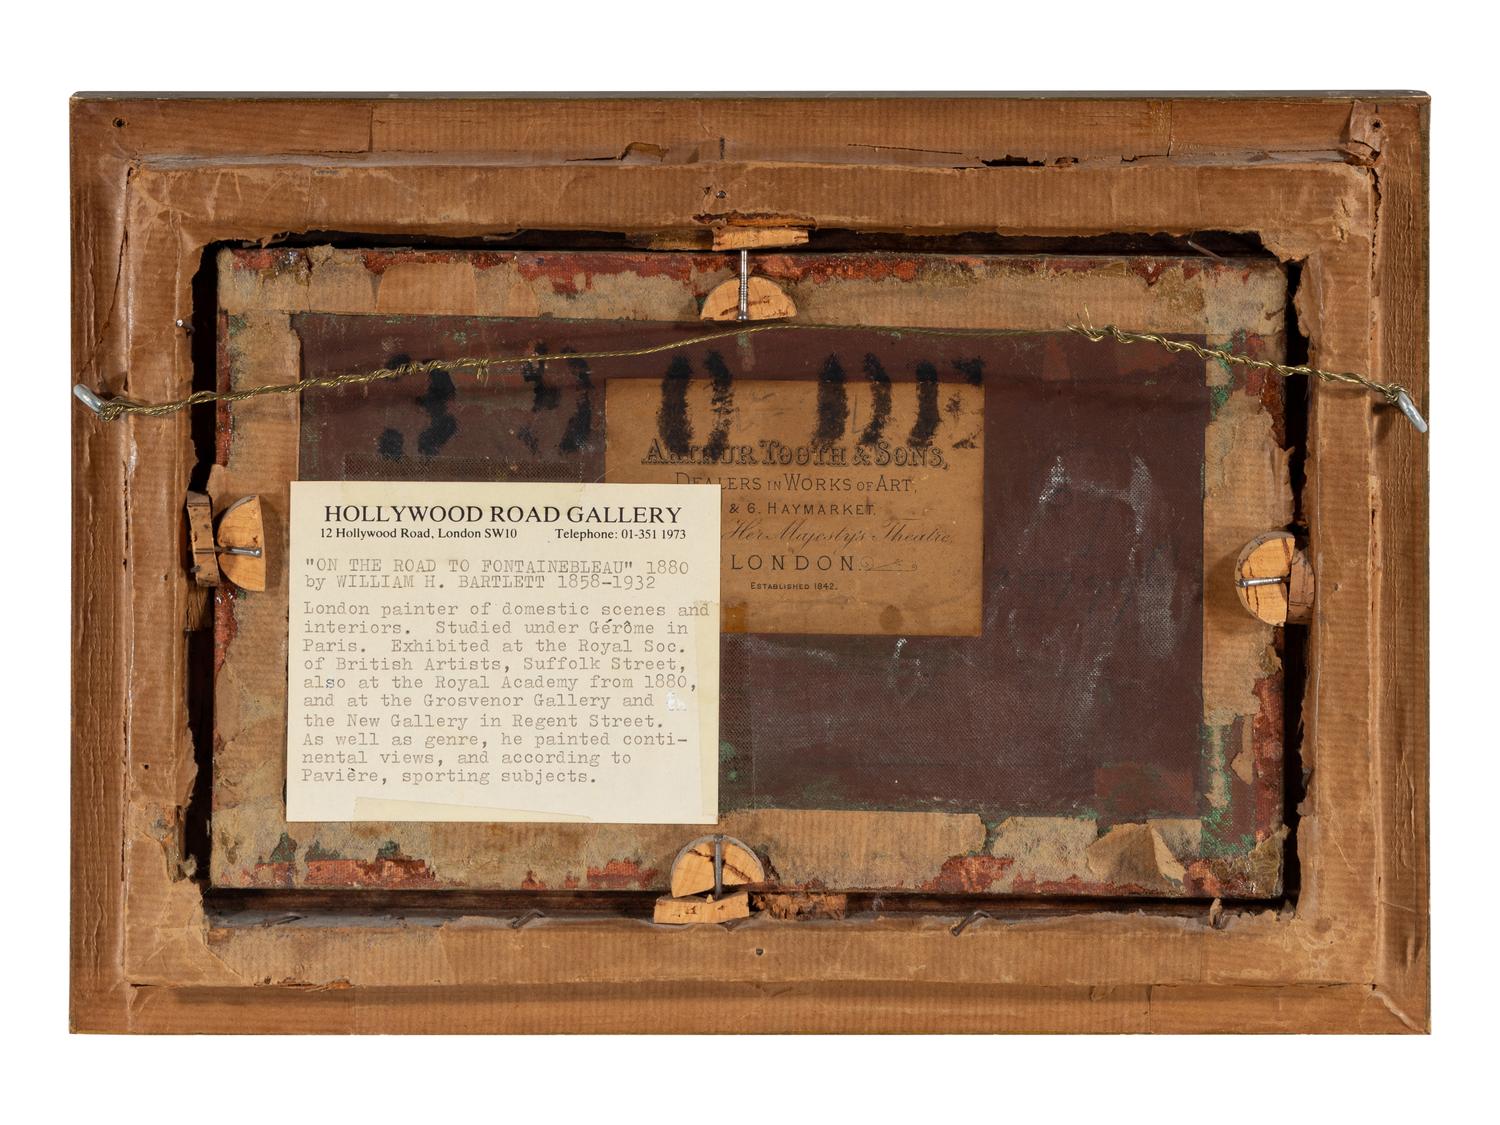 ARTHUR TOOTH & SONS,
DEALERS IN WORKS OF ART,
& 6. HAYMARKET.
Her Majesty's Theatre,
LONDON.
ESTABLISHED 1842.
HOLLYWOOD ROAD GALLERY
12 Hollywood Road, London SW10 Telephone: 01-351 1973
"ON THE ROAD TO FONTAINEBLEAU" 1880
by WILLIAM H. BARTLETT 1858-1932
London painter of domestic scenes and
interiors. Studied under Gérôme in
Paris. Exhibited at the Royal Soc.
of British Artists, Suffolk Street,
also at the Royal Academy from 1880,
and at the Grosvenor Gallery and
the New Gallery in Regent Street.
As well as genre, he painted conti-
nental views, and according to
Pavière, sporting subjects.